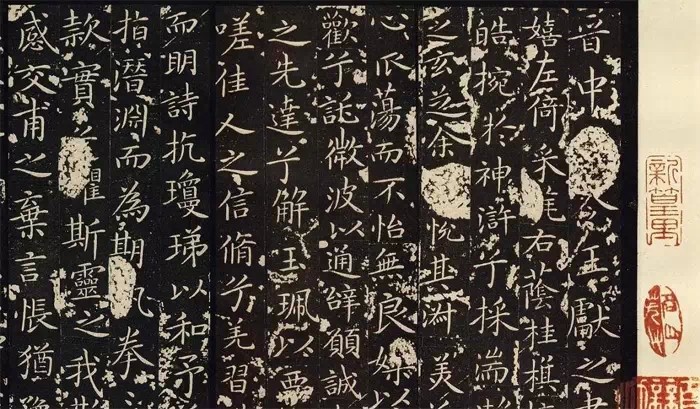 晉中王獻之書
嬉左倚采旄右蔭桂旗
皓捥於神滸兮採湍
之玄芝余悅其淑美
心振蕩而不怡無良媒以
歡兮託微波以通辭願誠
之先達兮解玉珮以要
嗟佳人之信脩兮羌習
而明詩抗瓊珶以和予
指潛淵而為期執拳
款實兮懼斯靈之我欺
感交甫之棄言悵猶豫